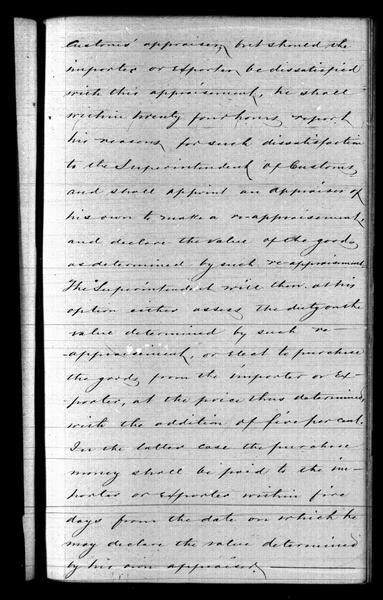 Customs' appraiser, but should the
importer or exporter be dissatisfied
with this appraisement, he shall
within twenty four hours, report
his reasons for such dissatisfaction
to the Superintendent of Customs,
and shall appoint an appraiser of
his own to make a re-appraisement,
and declare the value of the goods
as determined by such re-appraisement.
The Superintendent will then at his
option either assess the duty on the
value determined by such re-
-appraisement, or elect to purchase
the goods from the importer or Ex-
porter, at the price thus determined,
with the addition of five per cent.
In the latter case the purchase
money shall be paid to the im-
porter or exporter within five
days from the date on which he
may declare the value determined
by his own appraiser.